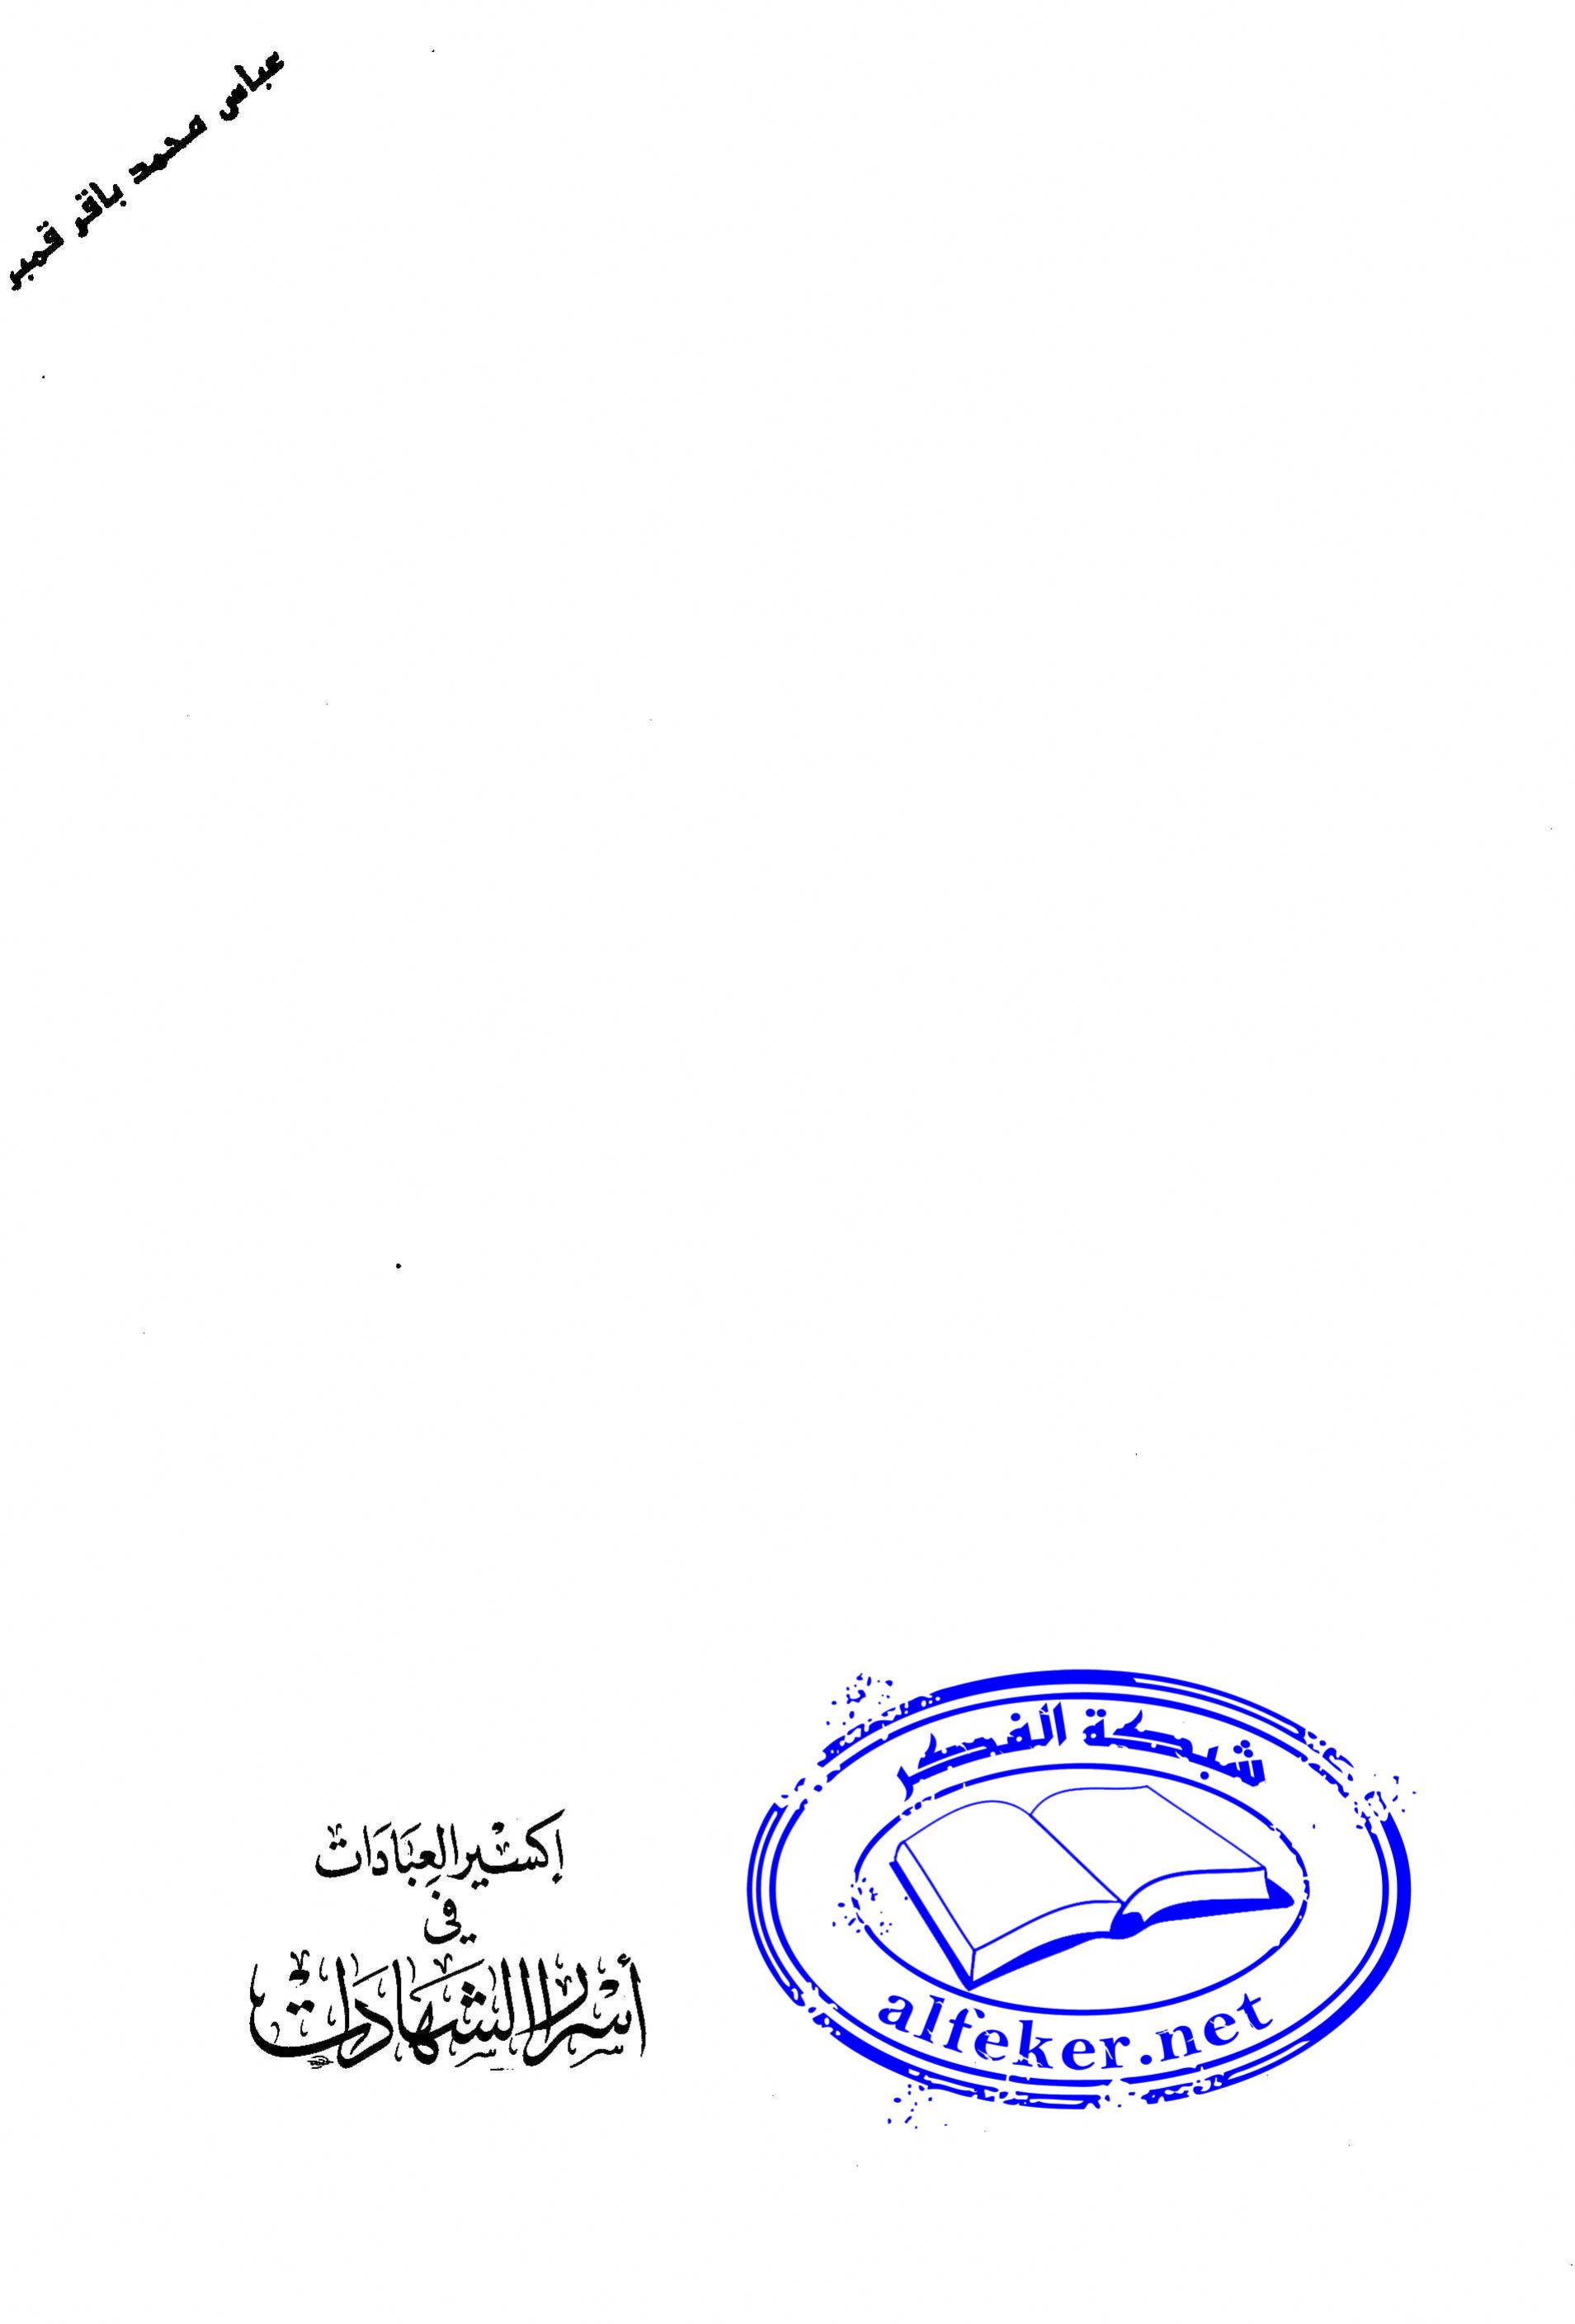 عباس محمد باقر قمبر
إكسير العبادات
في
أسرار الشهادات
شبكة الفكر
alfeker.net